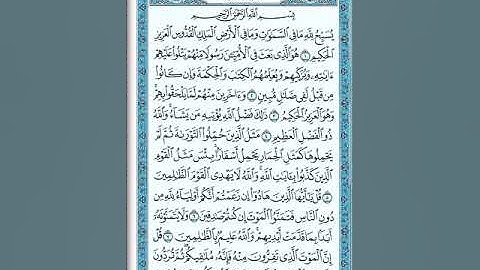 بِسْمِ اللَّهِ الرَّحْمَٰنِ الرَّحِيمِ
يُسَبِّحُ لِلَّهِ مَا فِي السَّمَٰوَٰتِ وَمَا فِي الْأَرْضِ الْمَلِكِ الْقُدُّوسِ الْعَزِيزِ
الْحَكِيمِ ١ هُوَ الَّذِي بَعَثَ فِي الْأُمِّيِّينَ رَسُولًا مِنْهُمْ يَتْلُوا عَلَيْهِمْ
ءَايَٰتِهِ وَيُزَكِّيهِمْ وَيُعَلِّمُهُمُ الْكِتَٰبَ وَالْحِكْمَةَ وَإِن كَانُوا
مِن قَبْلُ لَفِي ضَلَٰلٍ مُّبِينٍ ٢ وَءَاخَرِينَ مِنْهُمْ لَمَّا يَلْحَقُوا بِهِمْ
وَهُوَ الْعَزِيزُ الْحَكِيمُ ٣ ذَٰلِكَ فَضْلُ اللَّهِ يُؤْتِيهِ مَن يَشَاءُ وَاللَّهُ
ذُو الْفَضْلِ الْعَظِيمِ ٤ مَثَلُ الَّذِينَ حُمِّلُوا التَّوْرَىٰةَ ثُمَّ لَمْ
يَحْمِلُوهَا كَمَثَلِ الْحِمَارِ يَحْمِلُ أَسْفَارًا بِئْسَ مَثَلُ الْقَوْمِ
الَّذِينَ كَذَّبُوا بِـَٔايَٰتِ اللَّهِ وَاللَّهُ لَا يَهْدِي الْقَوْمَ الظَّٰلِمِينَ
٥ قُلْ يَٰأَيُّهَا الَّذِينَ هَادُوا إِن زَعَمْتُمْ أَنَّكُمْ أَوْلِيَاءُ لِلَّهِ مِن
دُونِ النَّاسِ فَتَمَنَّوُا الْمَوْتَ إِن كُنتُمْ صَٰدِقِينَ ٦ وَلَا يَتَمَنَّوْنَهُ
أَبَدًا بِمَا قَدَّمَتْ أَيْدِيهِمْ وَاللَّهُ عَلِيمٌ بِالظَّٰلِمِينَ ٧ قُلْ
إِنَّ الْمَوْتَ الَّذِي تَفِرُّونَ مِنْهُ فَإِنَّهُ مُلَٰقِيكُمْ ثُمَّ تُرَدُّونَ